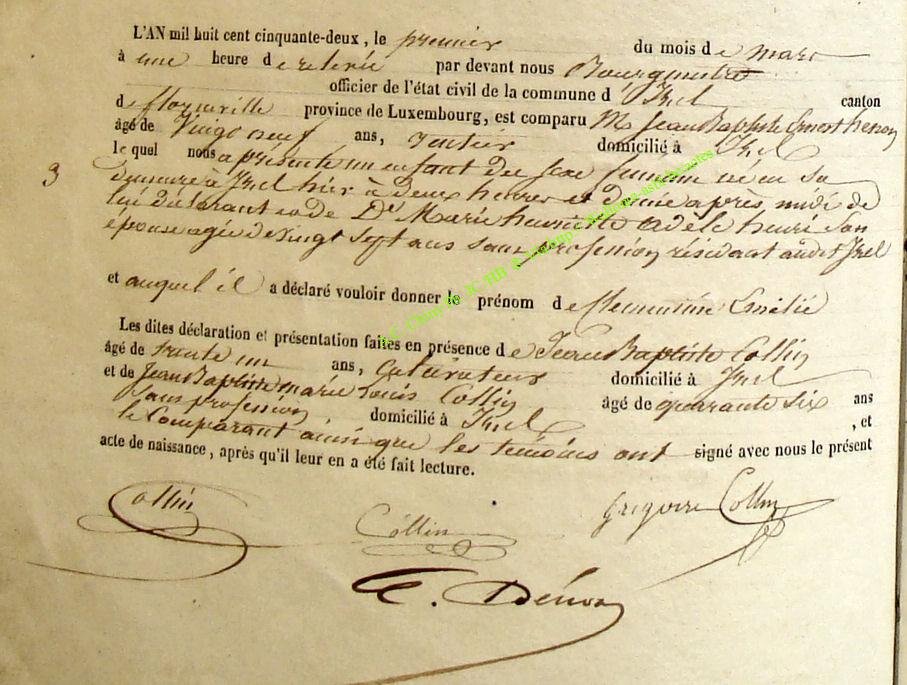 L'AN mil huit cent cinquante-deux, le premier du mois de mars
à une heure de relevée par devant nous Bourgmestre
officier de l'état civil de la commune d'Izel canton
de florenville province de Luxembourg, est comparu Mr Jean Baptiste Ernest henon
âgé de Vingt neuf ans, rentier domicilié à Izel
le quel nous a présenté un enfant du sexe féminin né en sa
3 demeure à Izel hier à deux heures et demie après midi de
lui déclarant et de De Marie henriette Adèle henri son
épouse agée de vingt sept ans sans profession résidant audit Izel
et auquel il a déclaré vouloir donner le prénom de Clémentine Emélie
Les dites déclaration et présentation faites en présence de Jean Baptiste Collin
âgé de trente un ans, cultivateur domicilié à Izel
et de Jean Baptiste marie Louis Collin âgé de quarante six ans
sans profession domicilié à Izel , et
le Comparant ainsi que les témoins ont signé avec nous le présent
acte de naissance, après qu'il leur en a été fait lecture.
Collin Collin Grégoire Collin
E. Dénon